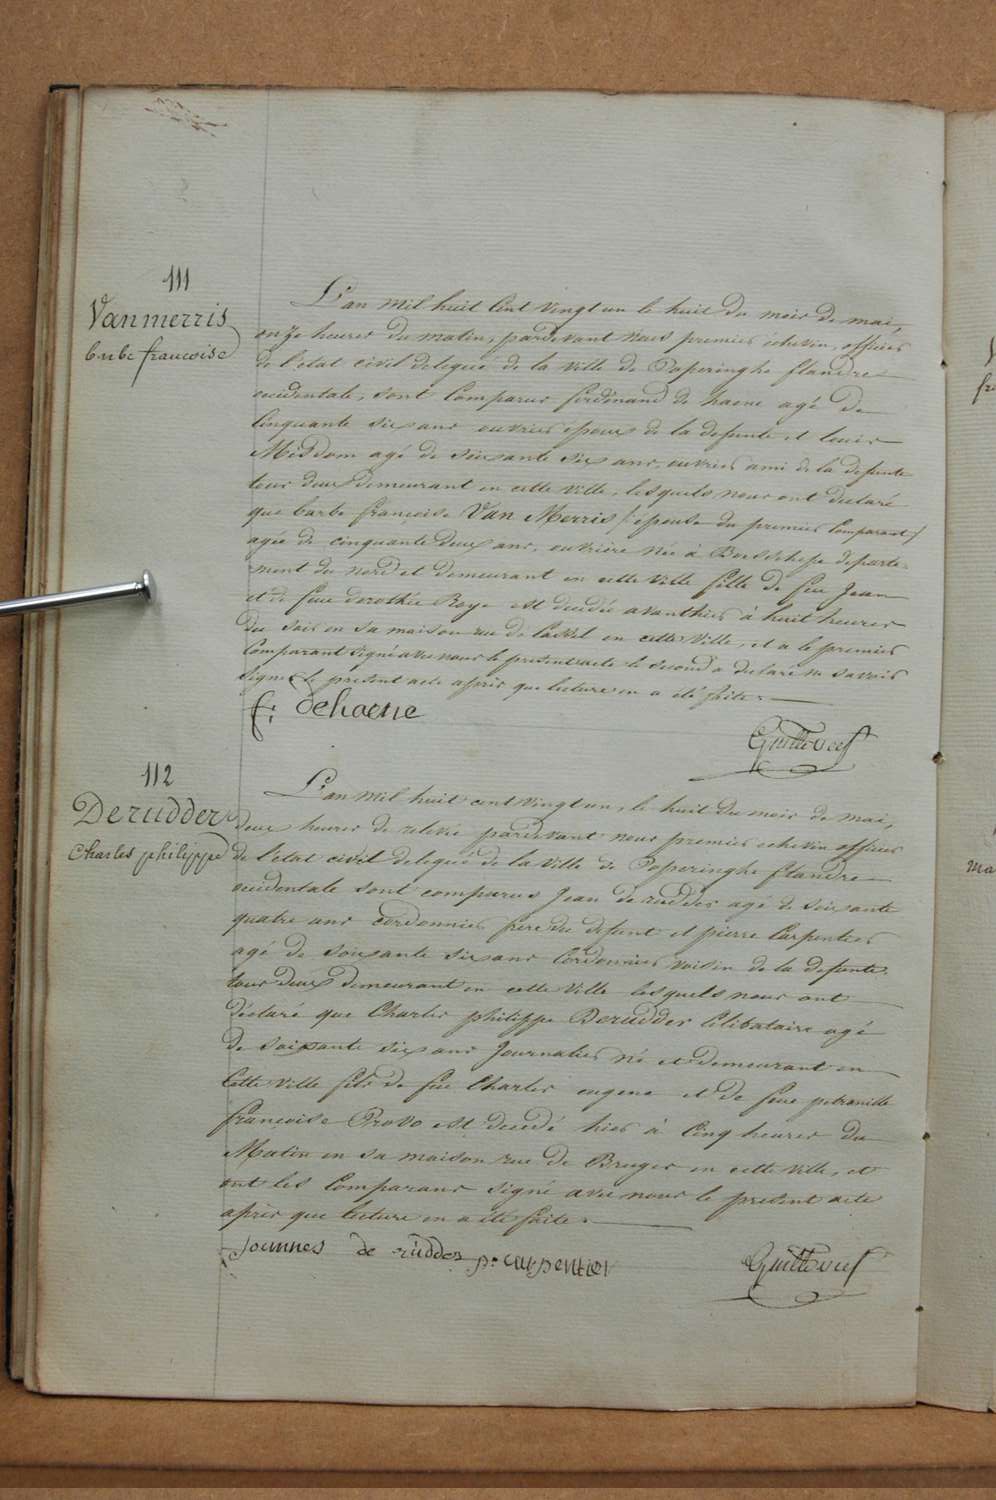 111
Vanmerris
barbe francoise
L'an mil huit cent vingt un le huit du mois de mai,
onze heures du matin, pardevant nous premier échevin, officier
de l'etat civil delegué de la ville de Poperinghe flandre
occidentale, sont comparus ferdinand de haene agé de
cinquante six ans ouvrier époux de la defunte et louis
Misdom agé de soixante six ans, ouvrier ami de la defunte
tous deux demeurant en cette ville, lesquels nous ont declaré
que barbe françoise Van Merris (épouse du premier comparant)
agée de cinquante deux ans, ouvrière née à departe-
ment du nord et demeurant en cette ville fille de feu Jean
et de feue dorothée Roye est decedée avanthier à huit heures
du soir en sa maison rue de Cassel en cette ville, et a le premier
comparant signé avec nous le present acte le second a declaré ne savoir
signer le present acte après que lecture en a été faite.
f: dehaene
112
Derudder
Charles philippe
L'an mil huit cent vingt un, le huit du mois de mai,
deux heures de relevée pardevant nous premier echevin officier
de l'etat civil delegué de la ville de Poperinghe flandre
occidentale sont comparus Jean de rudder agé de soixante
quatre ans cordonnier frere du defunt et pierre Carpentier
agé de soixante six ans Cordonnier voisin de la defunte
tous deux demeurant en cette ville lesquels nous ont
déclaré que Charles philippe Derudder Celibataire agé
de soixante six ans Journalier né et demeurant en
cette ville fils de feu Charles eugene et de feue petronille
françoise Provo est decedé hier à cinq heures du
Matin en sa maison rue de Bruges en cette ville, et
ont les comparans signé avec nous le present acte
après que lecture en a été faite.
Joannes de rudder p: carpentier